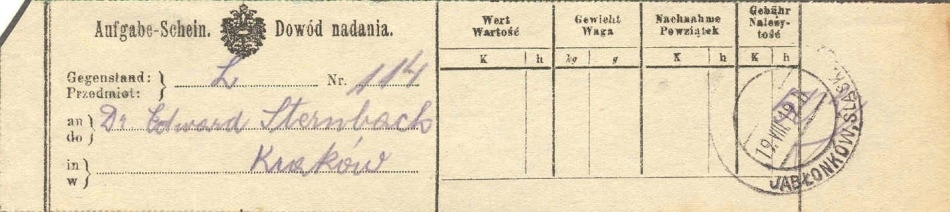 Aufgabe-Schein. Dowód nadania.
Gegenstand: } L Nr. 114
Przedmiot:
an } Dr Edward Sternbach
do
in } Kraków
w
Wert Gewicht Nachnahme Gebühr
Wartość Waga Powziątek Należy-
tość
K h kg g K h K h
19.VIII.19
JABŁONKÓW, ŚLĄSK